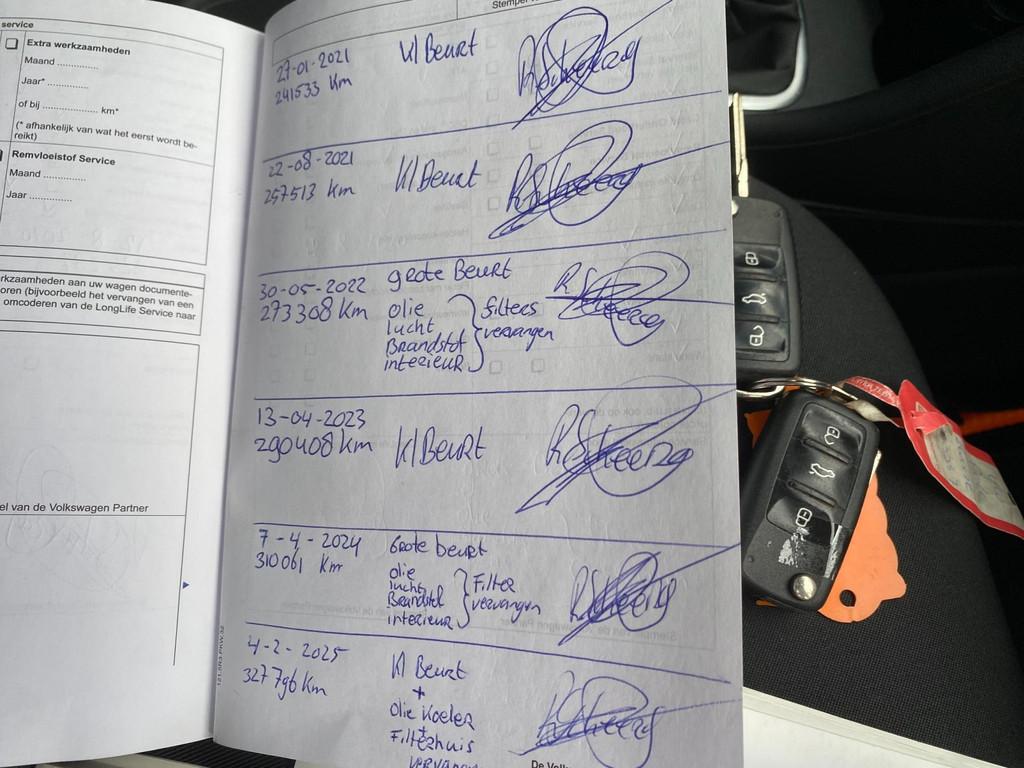 service
Extra werkzaamheden
Maand ..............
Jaar* ..............
of bij .................. km*
(* afhankelijk van wat het eerst wordt be-
reikt)
Remvloeistof Service
Maand ...............
Jaar ...............
rkzaamheden aan uw wagen documente-
oren (bijvoorbeeld het vervangen van een
omcoderen van de LongLife Service naar
el van de Volkswagen Partner
Stempel
27-01-2021 Kl Beurt
241533 Km
22-08-2021 Kl Beurt
257513 Km
30-05-2022 grote Beurt
273308 Km olie
lucht
Brandstof
interieur
filters
vervangen
13-04-2023
290408 Km Kl Beurt
7-4-2024 Grote beurt
310061 Km olie
lucht
Brandstof
interieur
Filter
vervangen
4-2-2025 Kl Beurt
327796 Km +
Olie Koeler
+
Filterhuis
vervangen
De Volk
121.5R3.PKW.32